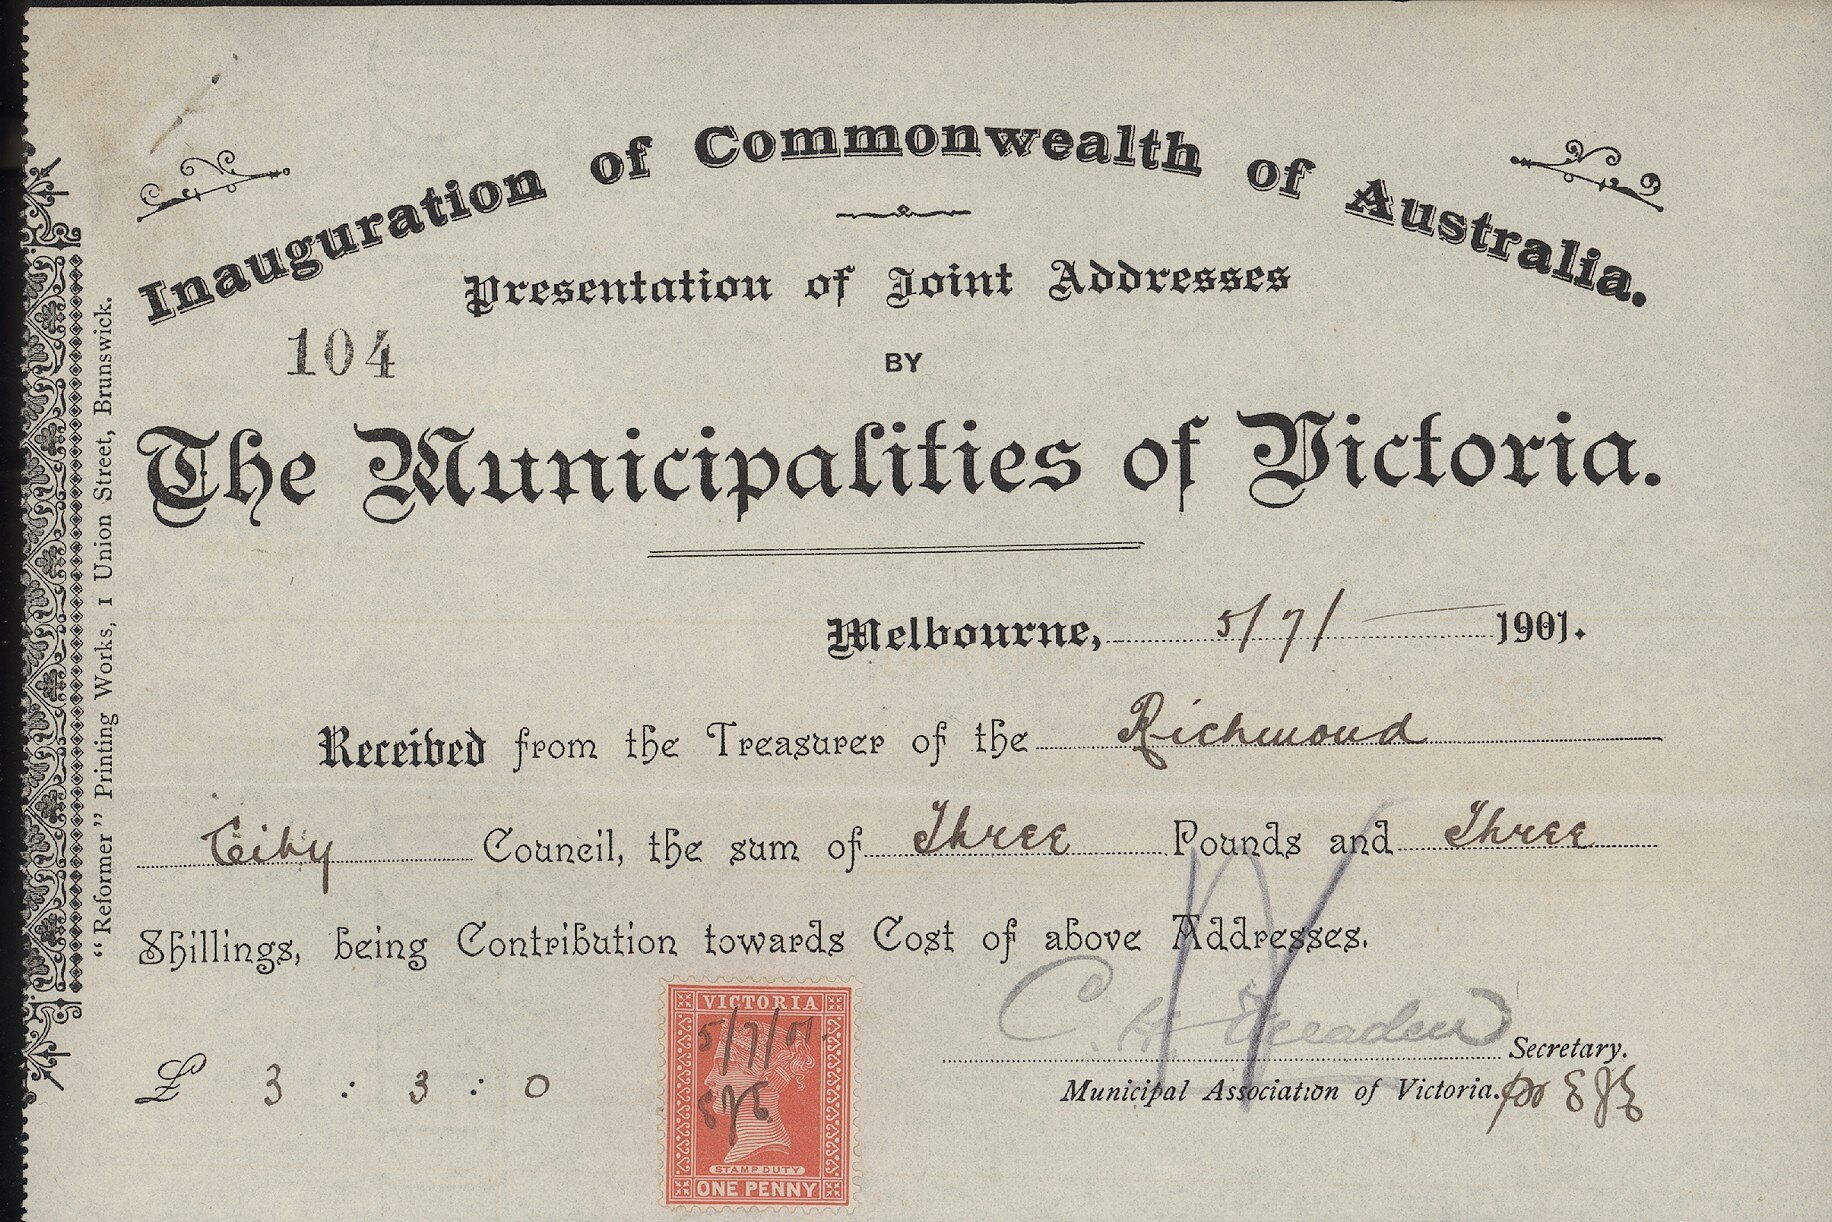 Inauguration of Commonwealth of Australia.
Presentation of Joint Addresses
104
BY
The Municipalities of Victoria.
Melbourne, 5/7/ 1901.
Received from the Treasurer of the Richmond
City Council, the sum of Three Pounds and Three
Shillings, being Contribution towards Cost of above Addresses.
£ 3 : 3 : 0
VICTORIA
5/7/01.
STAMP DUTY
ONE PENNY
C. Secretary.
Municipal Association of Victoria.
"Reformer" Printing Works, 1 Union Street, Brunswick.